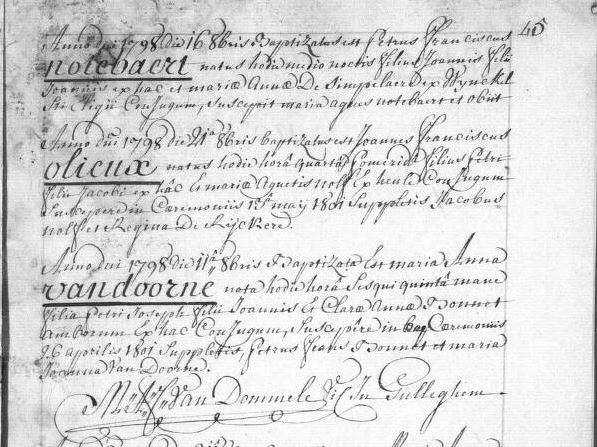 45
Anno dni 1798 die 16 8bris Baptizatus est Petrus Franciscus
notebaert natus hodie medio noctis filius Joannis filii
Joannis ex hac et mariæ Annæ De Simpelaere ex Wynckel
Sti Eligii Conjugum, Suscepit maria agnes notebaert et obiit
Anno dni 1798 die 21a 8bris baptizatus est Joannes Franciscus
olieux natus hodie horâ quartâ pomerid. filius Petri
filii Jacobi ex hâc Et mariæ Agnetis nolf Ex heule Conjugum
Suscepere in Cæremoniis 1 maij 1801 Suppletis Jacobus
nolf et Regina De Rijckere.
Anno dni 1798 die 11a 8bris Baptizata Est maria Anna
vandoorne nata hodie horâ Sesqui quintâ mane
filia Petri Joseph filii Joannis Et Claræ Annæ Bonnet
amborum Ex hac Conjugum, Suscepêre in Cæremoniis
26 aprilis 1801 Suppletis, Petrus Bonnet et maria
Joanna Van Doorne.
Van Dommele in Gulleghem